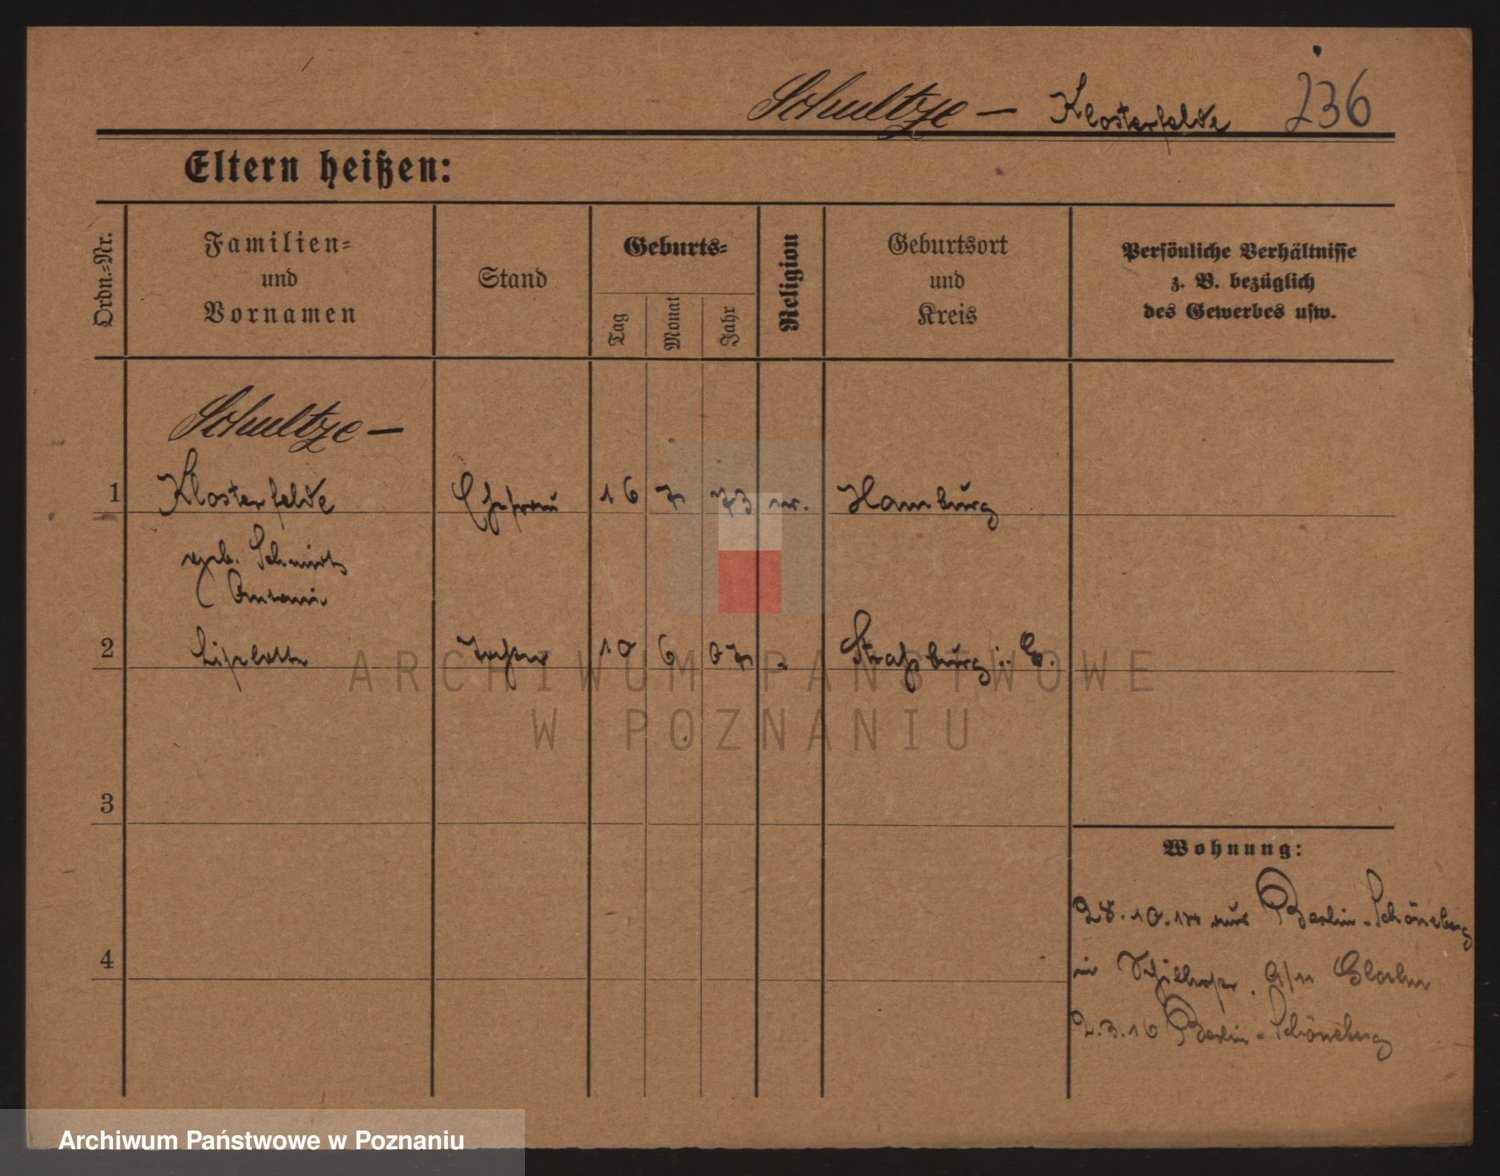 Schultze - Klosterfelde 236
Eltern heißen:
Ordn.-Nr.
Familien-
und
Vornamen
Stand
Geburts-
Tag
Monat
Jahr
Religion
Geburtsort
und
Kreis
Persönliche Verhältnisse
z. B. bezüglich
des Gewerbes usw.
Schultze -
1 Klosterfelde Ehefrau 16 7 73 ev. Hamburg
geb. Schmidt
2 Liselotte Tochter 10 6 07 Straßburg i. E.
3
Wohnung:
28.10.14 aus Berlin-Schöneberg
4
in 9/11
2.3.16 Berlin-Schöneberg
ARCHIWUM PAŃSTWOWE
W POZNANIU
Archiwum Państwowe w Poznaniu